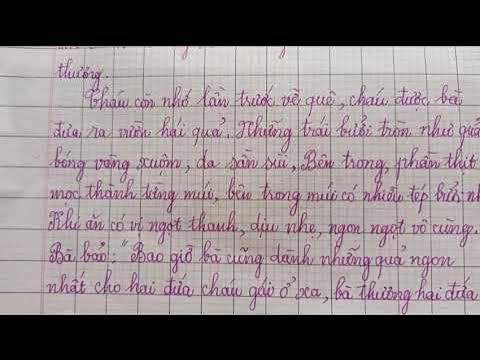 thương.
Cháu còn nhớ lần trước về quê, cháu được bà
đưa ra vườn hái quả. Những trái bưởi tròn như quả
bóng vàng xuộm, da sần sùi, Bên trong, phần thịt
mọc thành từng múi, bên trong múi có nhiều tép bưởi nh
Khi ăn có vị ngọt thanh, dịu nhẹ, ngon ngọt vô cùng.
Bà bảo: "Bao giờ bà cũng dành những quả ngon
nhất cho hai đứa cháu gái ở xa, bà thương hai đứa